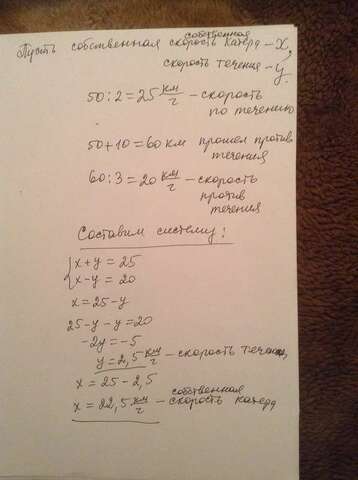 собственная
Пусть собственная скорость катера – x,
скорость течения – y.
50:2=25 км/ч – скорость
по течению
50+10=60 км прошел против
течения
60:3=20 км/ч – скорость
против
течения
Составим систему:
{x+y=25
x-y=20
x=25-y
25-y-y=20
-2y=-5
y=2,5 км/ч – скорость течения,
x=25-2,5
собственная
x=22,5 км/ч – скорость катера